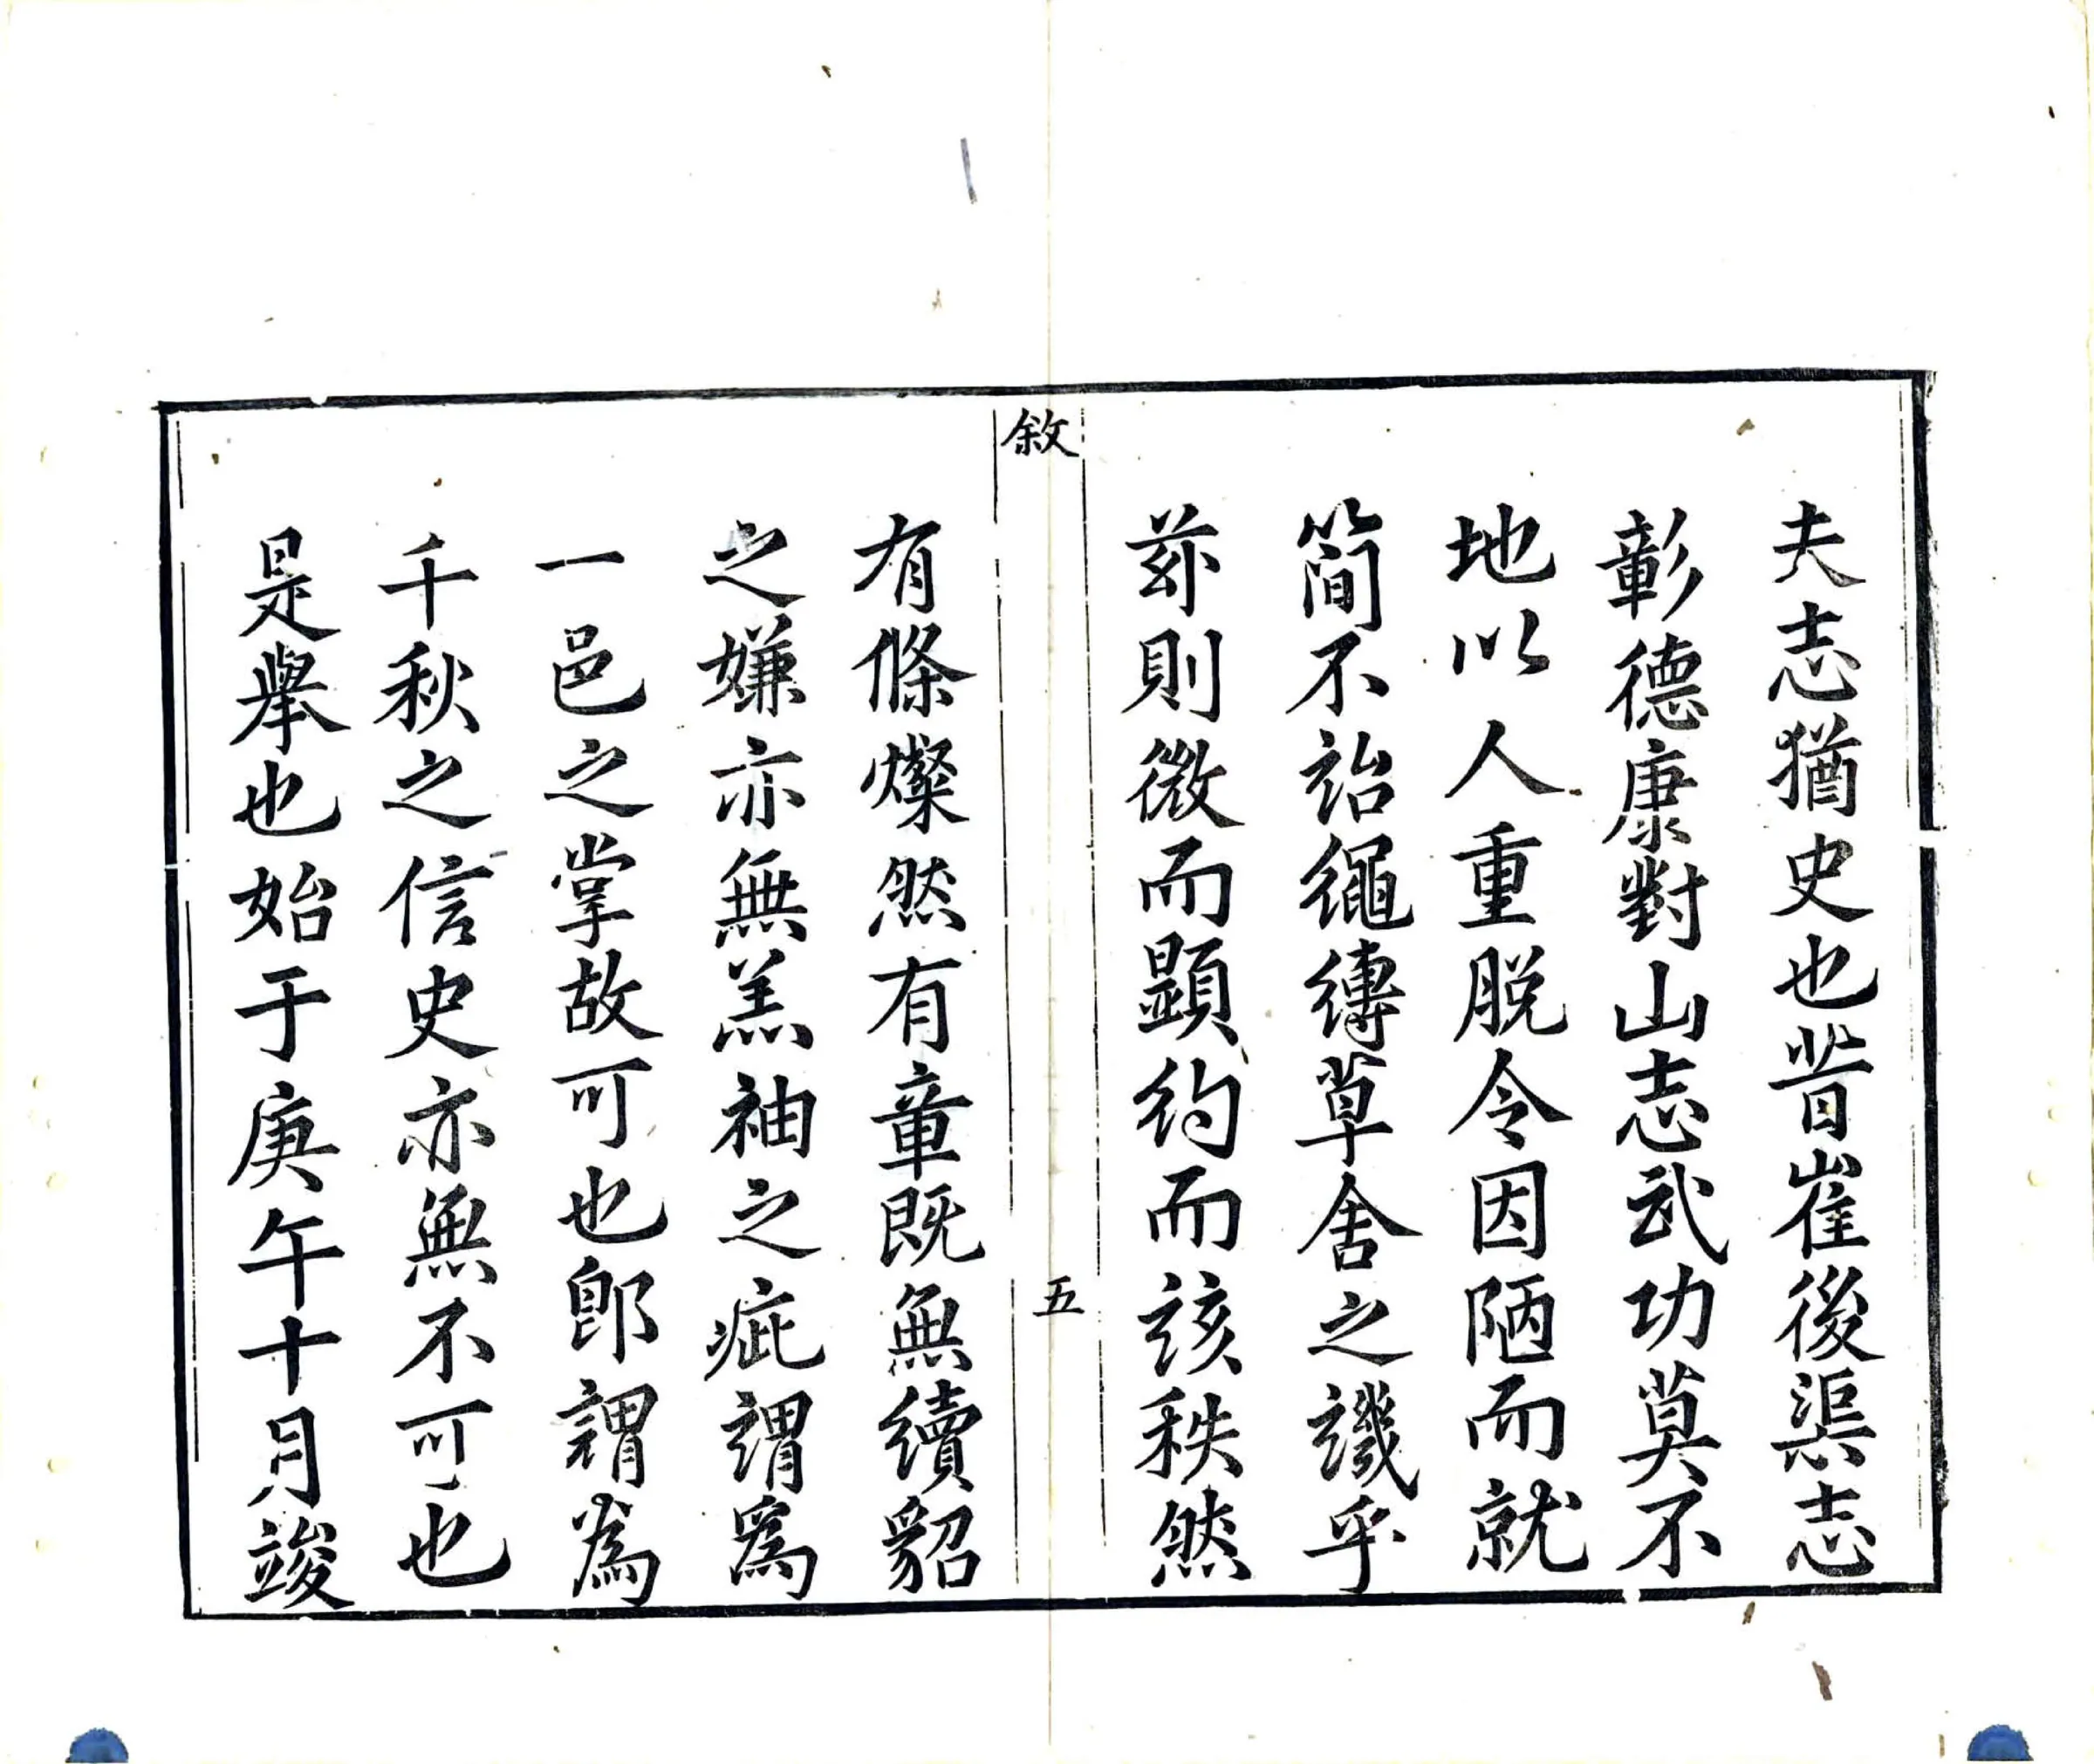 夫志猶史也昔崔後渠志
彰德康對山志武功莫不
地以人重脫令因陋而就
簡不詒繩縛草舍之譏乎
茲則微而顯約而該秩然
敘
五
有條燦然有章既無續貂
之嫌亦無羔袖之疵謂爲
一邑之掌故可也郎謂為
千秋之信史亦無不可也
是舉也始于庚午十月竣